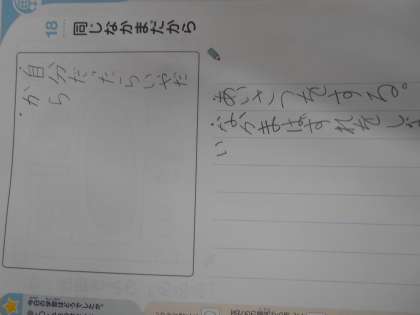 18 同じなかまだから
・自分だったらいやだ
から
・あいさつをする。
・なかまはずれをしな
い